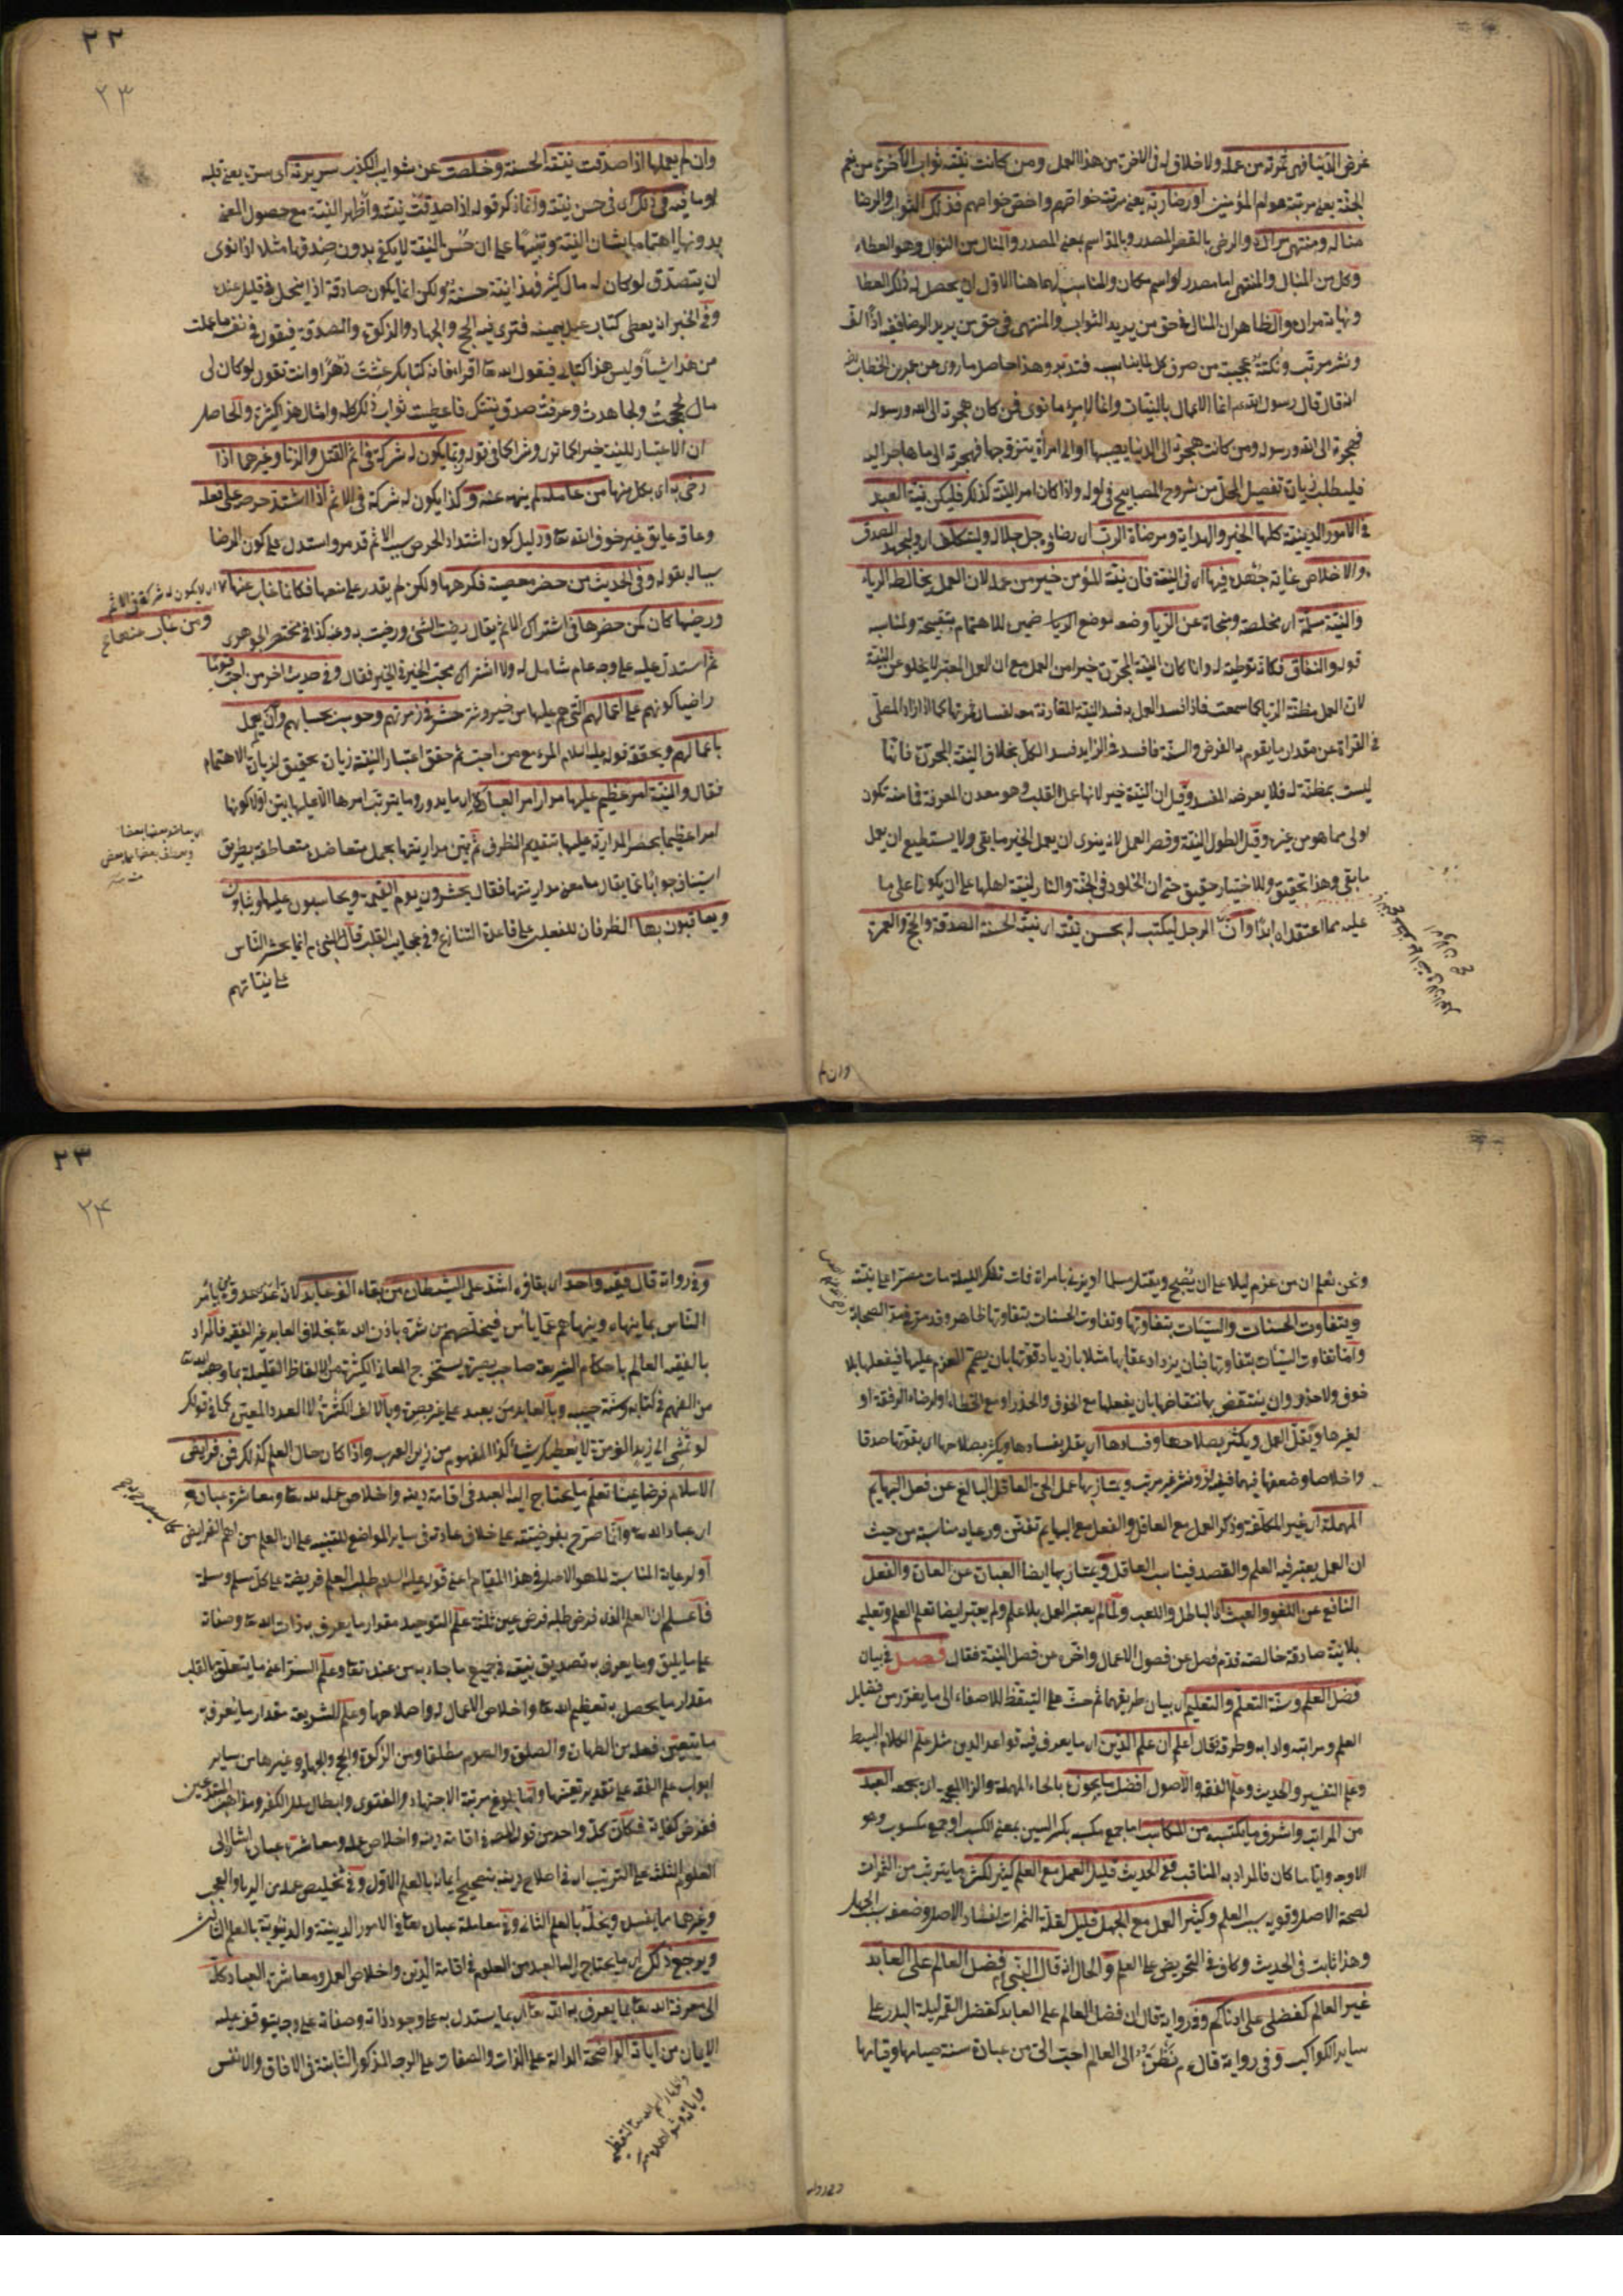 عرض الدنيا فهي ثمرته من عمله ولا خلاق له في الآخرة من هذا العمل ومن كانت نيته ثواب الآخرة من نعم
الجنة يعني مرتبة عوام المؤمنين او رضا ربه يعني مرتبة خواصهم واخص خواصهم فذلك الثواب والرضا
مناله ومنتهى مرامه والرضى بالقصر المصدر وبالمد اسم بمعنى المصدر والمنال من النوال وهو العطاء
وكل من المنال والمنتهى اما مصدر او اسم مكان والمناسب لهما هنا الاول اى يحصل له ذلك العطا
ونهاية مرامه والظاهر ان المنال في حق من يريد الثواب والمنتهى في حق من يريد الرضا ففيه اذا لف
ونشر مرتب ونكتة عجيبة من صرف كل لما يناسبه فتدبر وهذا حاصل ما روى عن عمر بن الخطاب
انه قال قال رسول الله انما الاعمال بالنيات وانما لامرء ما نوى فمن كان هجرته الى الله ورسوله
فهجرته الى الله ورسوله ومن كانت هجرته الى الدنيا يصيبها او الى امرأة يتزوجها فهجرته الى ما هاجر اليه
فليطلب زيادة تفصيل المحل من شروح المصابيح في اوله واذا كان امر النية كذلك فليكن نية العبد
في الامور الدينية كلها الخير والهداية ومرضاة الرب اى رضائه جل جلاله وليتكلف اى وليجهد الصدق
والاخلاص غاية جهده فيها اى في النية فان نية المؤمن خير من عمله لان العمل يخالطه الرياء
والنية سلمة اى مخلصة ومنجاة عن الريا وضعه لوضع الرياء ضمير للاهتمام بتقبيحه ولمناسبة
قوله والنفاق فكانه توطئة له وانما كان النية المجردة خيرا من العمل مع ان العمل المعتبر لا يخلو عن النية
لان العمل مظنة الريا كما سمعت فاذا فسد العمل به فسد النية المقارنة معه لفسار ثمرتها كما اذا زاد المصلى
في القراءة عن مقدار ما يقوم به الفرض والسنة فافسد في الزايد فسد الكل بخلاف النية المجردة فانها
ليست بمظنة له فلا يعرضه المفسد وقيل ان النية خير لانها عمل القلب وهو معدن المعرفة فما منه تكون
اولى مما هو من غيره وقيل الطول النية وقصر العمل لانه ينوى ان يعمل الخير ما بقى ولا يستطيع ان يعمل
ما بقى وهذا تحقيق وللاختيار حقيق حتم ان الخلود في الجنة والنار لنية اهلها على ان يكونا على ما
عليه مما اعتقداه ابدا وان الرجل ليكتب له بحسن نيته اى نيته الحسنة الصدقة والحج والعمرة
وان لم
٢٢
٢٣
وان لم يعملها اذا صدقت نيته الحسنة وخلصت عن شوايب الكذب سريرته اى سره يعنى قلبه
او ما فيه في ذلك اى في حسن نيته وانما ذكر قوله اذا صدقت نيته واظهر النية مع حصول المعنى
بدونها اهتماما بشان النية وتنبيها على ان حسن النية لا يكفى بدون صدقها مثلا اذا نوى
ان يتصدق لو كان له مال كثير فهذا نية حسنة ولكن انما يكون صادقة اذا لم يبخل في قليل عنده
وفي الخبر انه يعطى كتاب عبد بيمينه فترى فيه الحج والجهاد والزكوة والصدقة فيقول في نفسه ما عملت
من هذا شيئا وليس هذا كتابى فيقول الله تعا اقرأ فانه كتابك عشت دهرا وانت تقول لو كان لى
مال لحججت ولجاهدت وعرفت صدق نيتك فاعطيت ثواب ذلك كله وامثال هذا كثيرة والحاصل
ان الاعتبار للنية خيرا كان وشرا كما في قوله وربما يكون له شركة في اثم القتل والزنا وغيرهما اذا
رضى به اى بكل منها من عامله لم ينهه عنه وكذا يكون له شركة في الاثم اذا اشتد حرصه على فعله
وعاقه عايق غير خوف الله تعا ودليل كون اشتداد الحرص سبب الاثم قد مر واستدل على كون الرضا
سببا له بقوله وفي الحديث من حضر معصية فكرهها ولكن لم يقدر على منعها فكانما غاب عنها
اى لا يكون له شركة في الاثم
ومن غاب عنها ع
ورضيها كان كمن حضرها في اشتراك الاثم يقال رضيت الشئ ورضيت به وعنه كذا في مختصر الجوهرى
ثم استدل عليه على وجه عام شامل له ولاشتراك محب الخير في الخير فقال وفي حديث اخر من احب قوما
راضيا كونهم على اعمالهم التى هم عليها من خير وشر حشر في زمرتهم وحوسب بحسابهم وان لم يعمل
باعمالهم ويحققه قوله عليه السلام المرء مع من احبه ثم حقق اعتبار النية زيادة تحقيق لزيادة الاهتمام
فقال والنية امر عظيم عليها مدار امر العبادة اى ما يدور وما يترتب امرها الا عليها بين اولا كونها
امرا عظيما بحصر المدارية عليها بتقديم الظرف ثم بين مداريتها بجمل متعاضد متعاطفة بطريق
استيناف جوابا عما يقال ما معنى مداريتها فقال يحشرون يوم القيمة ويحاسبون عليها ويثابون
ويعاقبون بها الظرفان للفعلين على قاعدة التنازع وفي عجايب القلب قال النبى انما يحشر الناس
على نياتهم
ونحن نعلم ان من عزم ليلا على ان يصبح ويقتل مسلما او يزنى بامراة فمات تلك الليلة مات مصرا على نيته
ويتفاوت الحسنات والسيئات بتفاوتها وتفاوت الحسنات بتفاوتها ظاهر وقد مر في قصة الصحابة
واما تفاوت السيئات بتفاوتها فبان يزداد عقابها مثلا بازدياد قوتها بان يصمم العزم عليها فيفعلها بلا
خوف ولا حذر وان ينتقض بانتقاضها بان يفعلها مع الخوف والحذر او مع الخطاء او لرضاء الرفقة او
لغيرها ويقل العمل ويكثر بصلاحها وفسادها اى يقل بفسادها ويكثر بصلاحها اى بقوتها صدقا
واخلاصا وضعفها فيهما ففيه لف ونشر غير مرتب ويمتاز بها عمل الحى العاقل البالغ عن فعل البهايم
المهملة اى غير المكلفة وذكر العمل مع العاقل والفعل مع البهايم تفنن ورعاية مناسبة من حيث
ان العمل يعتبر فيه العلم والقصد فيناسب العاقل ويمتاز بها ايضا العبادة عن العادة والفعل
النافع عن اللغو والعبث اى الباطل واللعب ولما لم يعتبر العمل بلا علم ولم يعتبر ايضا تعلم العلم وتعليمه
بلا نية صادقة خالصة قدم فصل عن فصول الاعمال واخر عن فصل النية فقال فصل في بيان
فضل العلم وسنة التعلم والتعليم اى بيان طريقهما ثم حث على التيقظ للاصغاء الى ما يقرر من فضايل
العلم ومراتبه وادابه وطرقه فقال اعلم ان علم الدين اى ما يعرف فيه قواعد الدين مثل علم الكلام البسيط
وعلم التفسير والحديث وعلم الفقه والاصول افضل ما يحوزه بالحاء المهملة والزاى المعجمة اى يجمعه العبد
من المراتب واشرف ما يكتسبه من المكاسب اما جمع مكسب بكسر السين بمعنى الكسب او جمع مكسوب وهو
الاوجه واياما كان فالمراد به المناقب وفي الحديث قليل العمل مع العلم كثير لكثرة ما يترتب من الثمرات
لصحة الاصل وقوته بسبب العلم وكثير العمل مع الجهل قليل لقلة الثمرات لفساد الاصل وضعفه بسبب الجهل
وهذا ثابت في الحديث وكان في التحريض على العلم والحال انه قال النبى فضل العالم على العابد
غير العالم كفضلى على ادناكم وفي رواية قال ان فضل العالم على العابد كفضل القمر ليلة البدر على
ساير الكواكب وفي رواية قال نظرة الى العالم احب الى من عبادة سنة صيامها وقيامها
وفي رواية
٢٣
٢٤
وفي رواية قال فقيه واحد اى بقاؤه اشد على الشيطان من بقاء الف عابد لانه اشد عدوه يأمر
الناس بما ينهاه وينهاهم عما يأمر فيخلصهم من شره باذن الله تعا بخلاف العابد غير الفقيه فالمراد
بالفقيه العالم باحكام الشريعة صاحب بصيرة يستخرج المعانى الكثيرة من الالفاظ القليلة بما وهبه الله تعا
من الفهم في كتابه وسنة حبيبه وبالعابد من يعبد على غير بصيرة وبالالف الكثرة لا العدد المعين كما في قولك
واذا كان حال العلم كذلك فرض فرايض
الاسلام فرضا عينا تعلم ما يحتاج اليه العبد في اقامة دينه واخلاص عمله لله تعا ومعاشرة عباده
اى عباد الله تعا وانما صرح بفرضيته على خلاف عادته في ساير المواضع للتنبيه على ان العلم من اهم الفرايض
او لرعاية المناسبة لما هو الاصل في هذا المقام اعنى قوله عليه السلام طلب العلم فريضة على كل مسلم ومسلمة
فاعلم ان العلم الذى فرض طلبه فرض عين ثلثة علم التوحيد مقدار ما يعرف به ذات الله تعا وصفاته
على ما يليق وما يعرف به تصديق نبيه في جميع ما جاء به من عند الله تعا وعلم السر اعنى ما يتعلق بالقلب
مقدار ما يحصل به تعظيم الله تعا واخلاص الاعمال له واصلاحها وعلم الشريعة مقدار ما يعرف به
ما يتعين فعله من الطهارة والصلوة والصوم مطلقا ومن الزكوة والحج والجهاد وغيرها من ساير
ابواب علم الفقه على تقدير تعينها واما بلوغ مرتبة الاجتهاد والفتوى وابطال ملل الكفر ومذاهب المبتدعين
ففرض كفاية فكان كل واحد من قول المص في اقامة دينه واخلاص عمله ومعاشرة عباده اشارة الى
العلوم الثلثة على الترتيب اى في اصلاح دينه بتصحيح ايمانه بالعلم الاول وفي تخليص عمله من الريا والعجب
وغيرهما مما يفسد ويخل بالعلم الثانى وفي معاملة عباده تعا في الامور الدينية والدنيوية بالعلم الثالث
ومرجع ذلك اى ما يحتاج اليه العبد من العلوم في اقامة الدين واخلاص العمل ومعاشرة العباد كله
الى معرفة الله تعا بما يعرف به الله تعا اى بما يستدل به على وجود ذاته وصفاته على وجه يتوقف عليه
الايمان من اياته الواضحة الدالة على الذات والصفات على الوجه المذكور الثابتة في الافاق والانفس